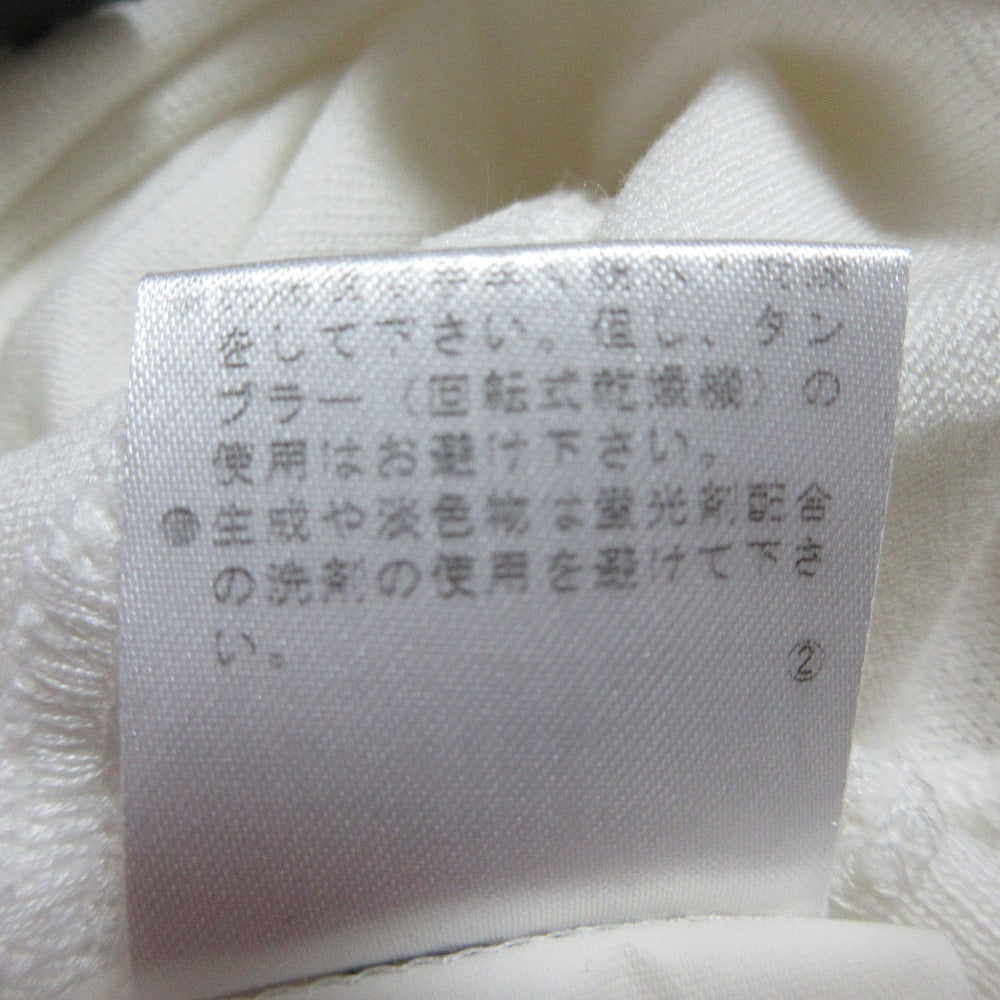 をして下さい。但し、タン
ブラー(回転式乾燥機)の
使用はお避け下さい。
●生成や淡色物は蛍光剤配合
の洗剤の使用を避けて下さ
い。
②